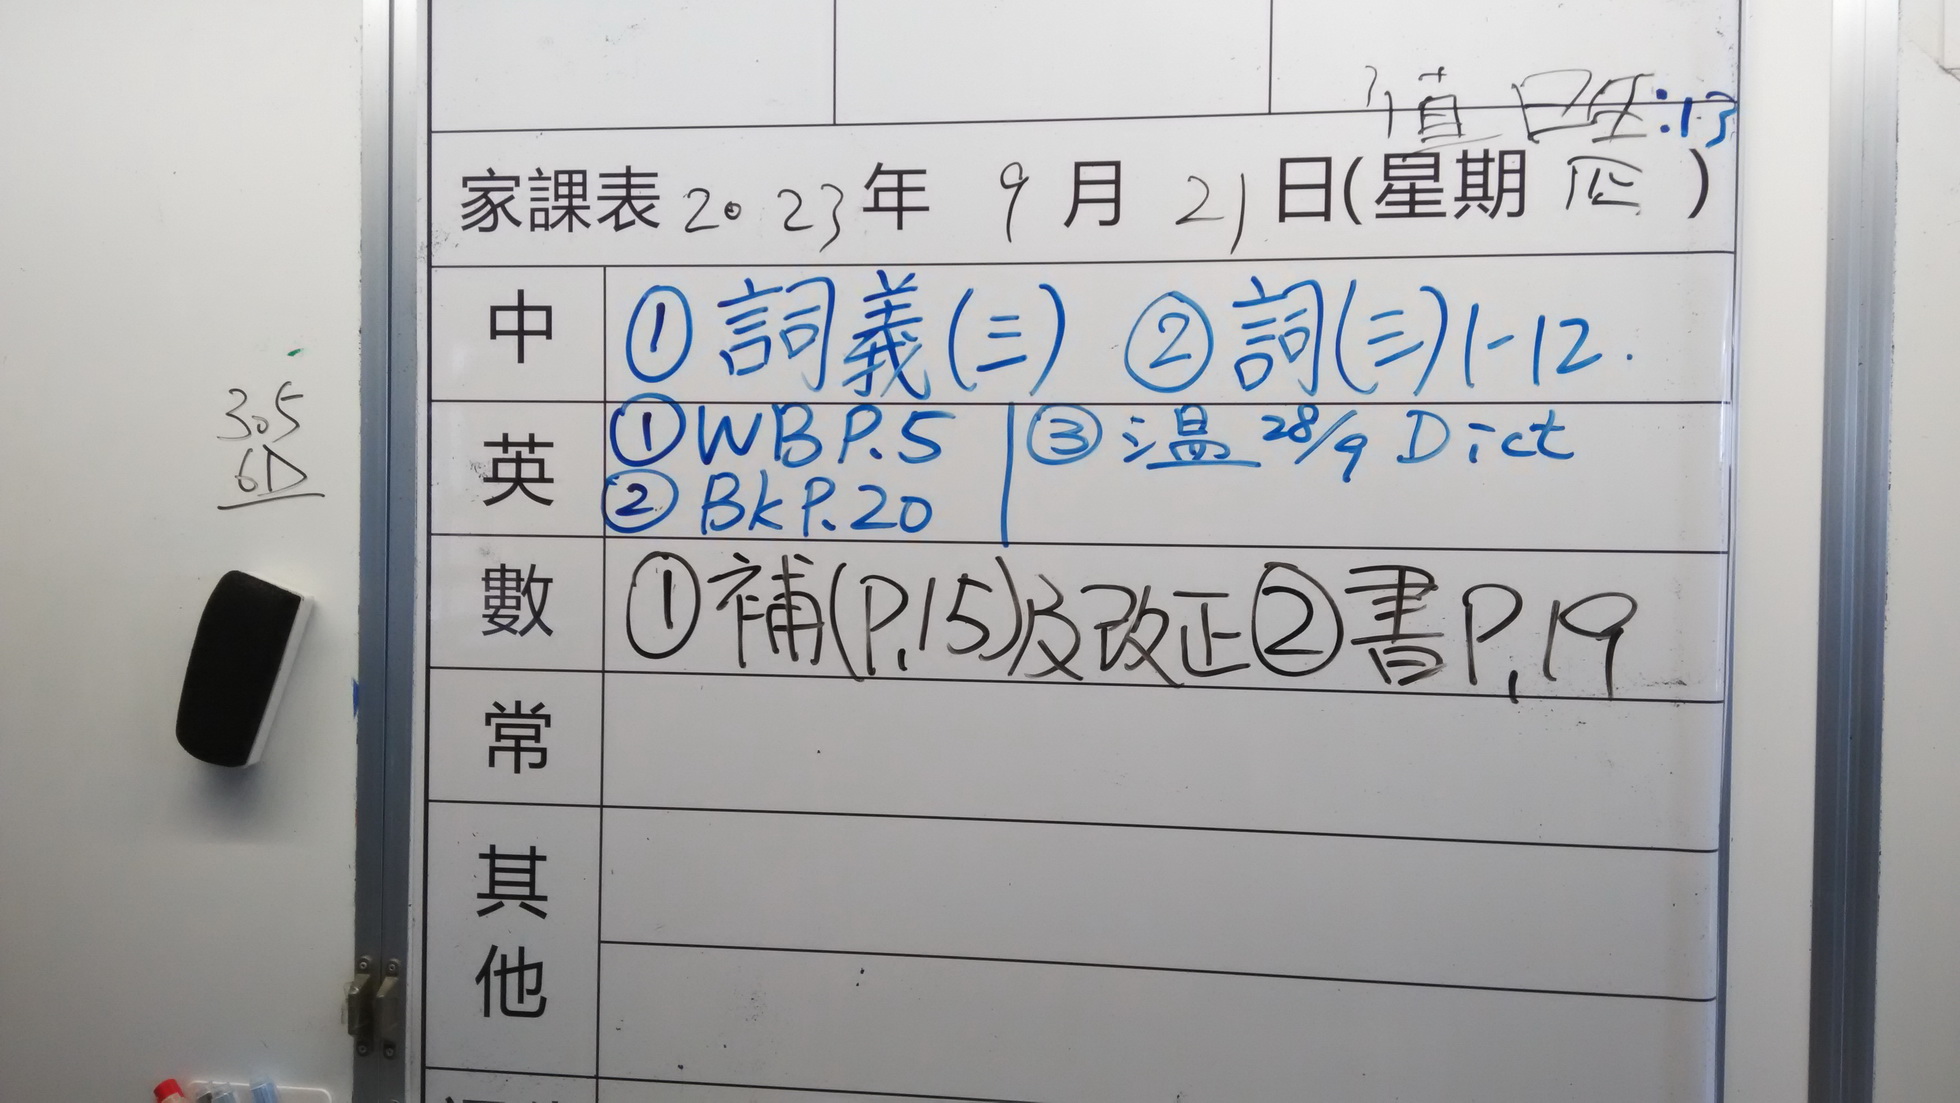 值日生:13
家課表 2023年 9月 21日(星期 四)
中 ① 詞義(三) ② 詞(三)1-12.
英 ① WB P.5 ③ 温 28/9 Dict
② Bk P.20
數 ① 補(P.15)及改正 ② 書 P.19
常
其他
305
6D